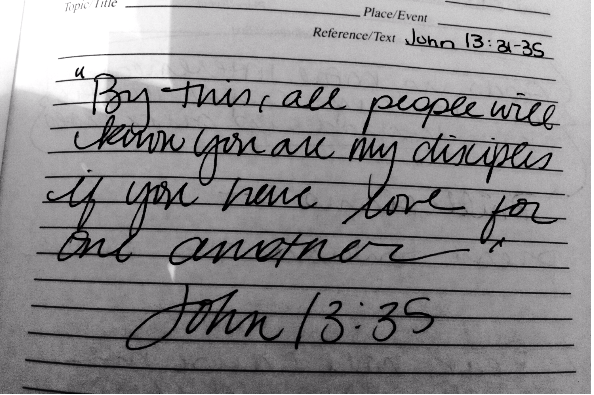 Topic Title
Place/Event
Reference/Text John 13:31-35
"By this, all people will
know you are my disciples
if you have love for
one another"
John 13:35